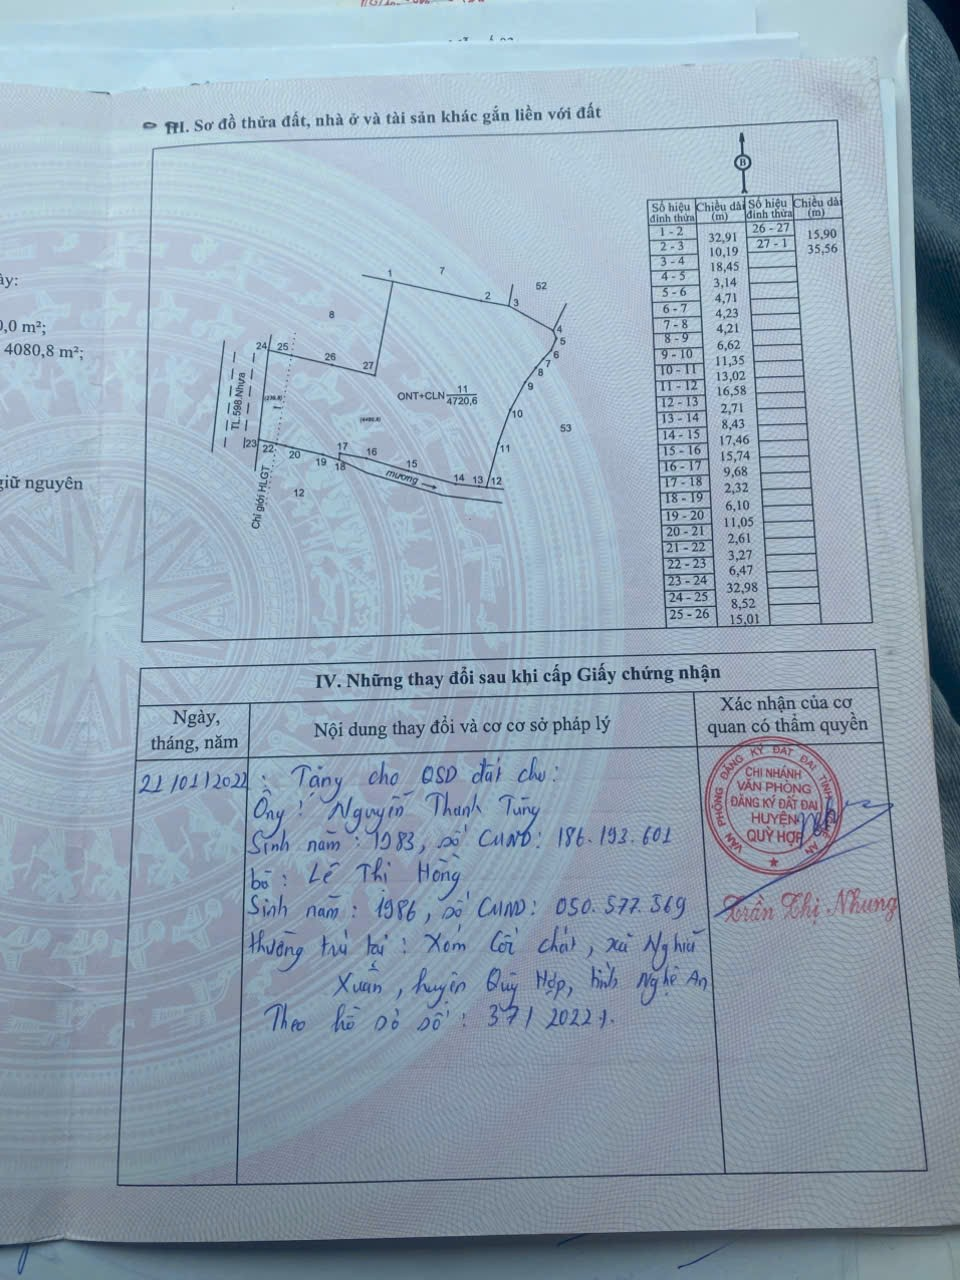 III. Sơ đồ thửa đất, nhà ở và tài sản khác gắn liền với đất
ày:
0,0 m²;
4080,8 m²;
giữ nguyên
B
1
7
2
3
52
4
5
6
7
8
9
10
11
53
8
24
25
26
27
ONT+CLN 11
4720,6
TL.598.Nhựa
23
22
20
19
18
17
16
15
14
13
12
mương
12
Chỉ giới HLGT
Số hiệu đỉnh thửa Chiều dài (m) Số hiệu đỉnh thửa Chiều dài (m)
1 - 2 32,91 26 - 27 15,90
2 - 3 10,19 27 - 1 35,56
3 - 4 18,45
4 - 5 3,14
5 - 6 4,71
6 - 7 4,23
7 - 8 4,21
8 - 9 6,62
9 - 10 11,35
10 - 11 13,02
11 - 12 16,58
12 - 13 2,71
13 - 14 8,43
14 - 15 17,46
15 - 16 15,74
16 - 17 9,68
17 - 18 2,32
18 - 19 6,10
19 - 20 11,05
20 - 21 2,61
21 - 22 3,27
22 - 23 6,47
23 - 24 32,98
24 - 25 8,52
25 - 26 15,01
IV. Những thay đổi sau khi cấp Giấy chứng nhận
Ngày, tháng, năm
Nội dung thay đổi và cơ cơ sở pháp lý
Xác nhận của cơ quan có thẩm quyền
21/01/2022: Tặng cho QSD đất cho:
Ông: Nguyễn Thanh Tùng
Sinh năm: 1983, số CMND: 186.193.601
bà: Lê Thị Hồng
Sinh năm: 1986, số CMND: 050.577.369
thường trú tại: Xóm Cồi chát, xã Nghĩa
Xuân, huyện Quỳ Hợp, tỉnh Nghệ An
Theo hồ sơ số: 37/2022/.
VĂN PHÒNG ĐĂNG KÝ ĐẤT ĐAI TỈNH
CHI NHÁNH
VĂN PHÒNG
ĐĂNG KÝ ĐẤT ĐAI
HUYỆN
QUỲ HỢP
Trần Thị Nhung